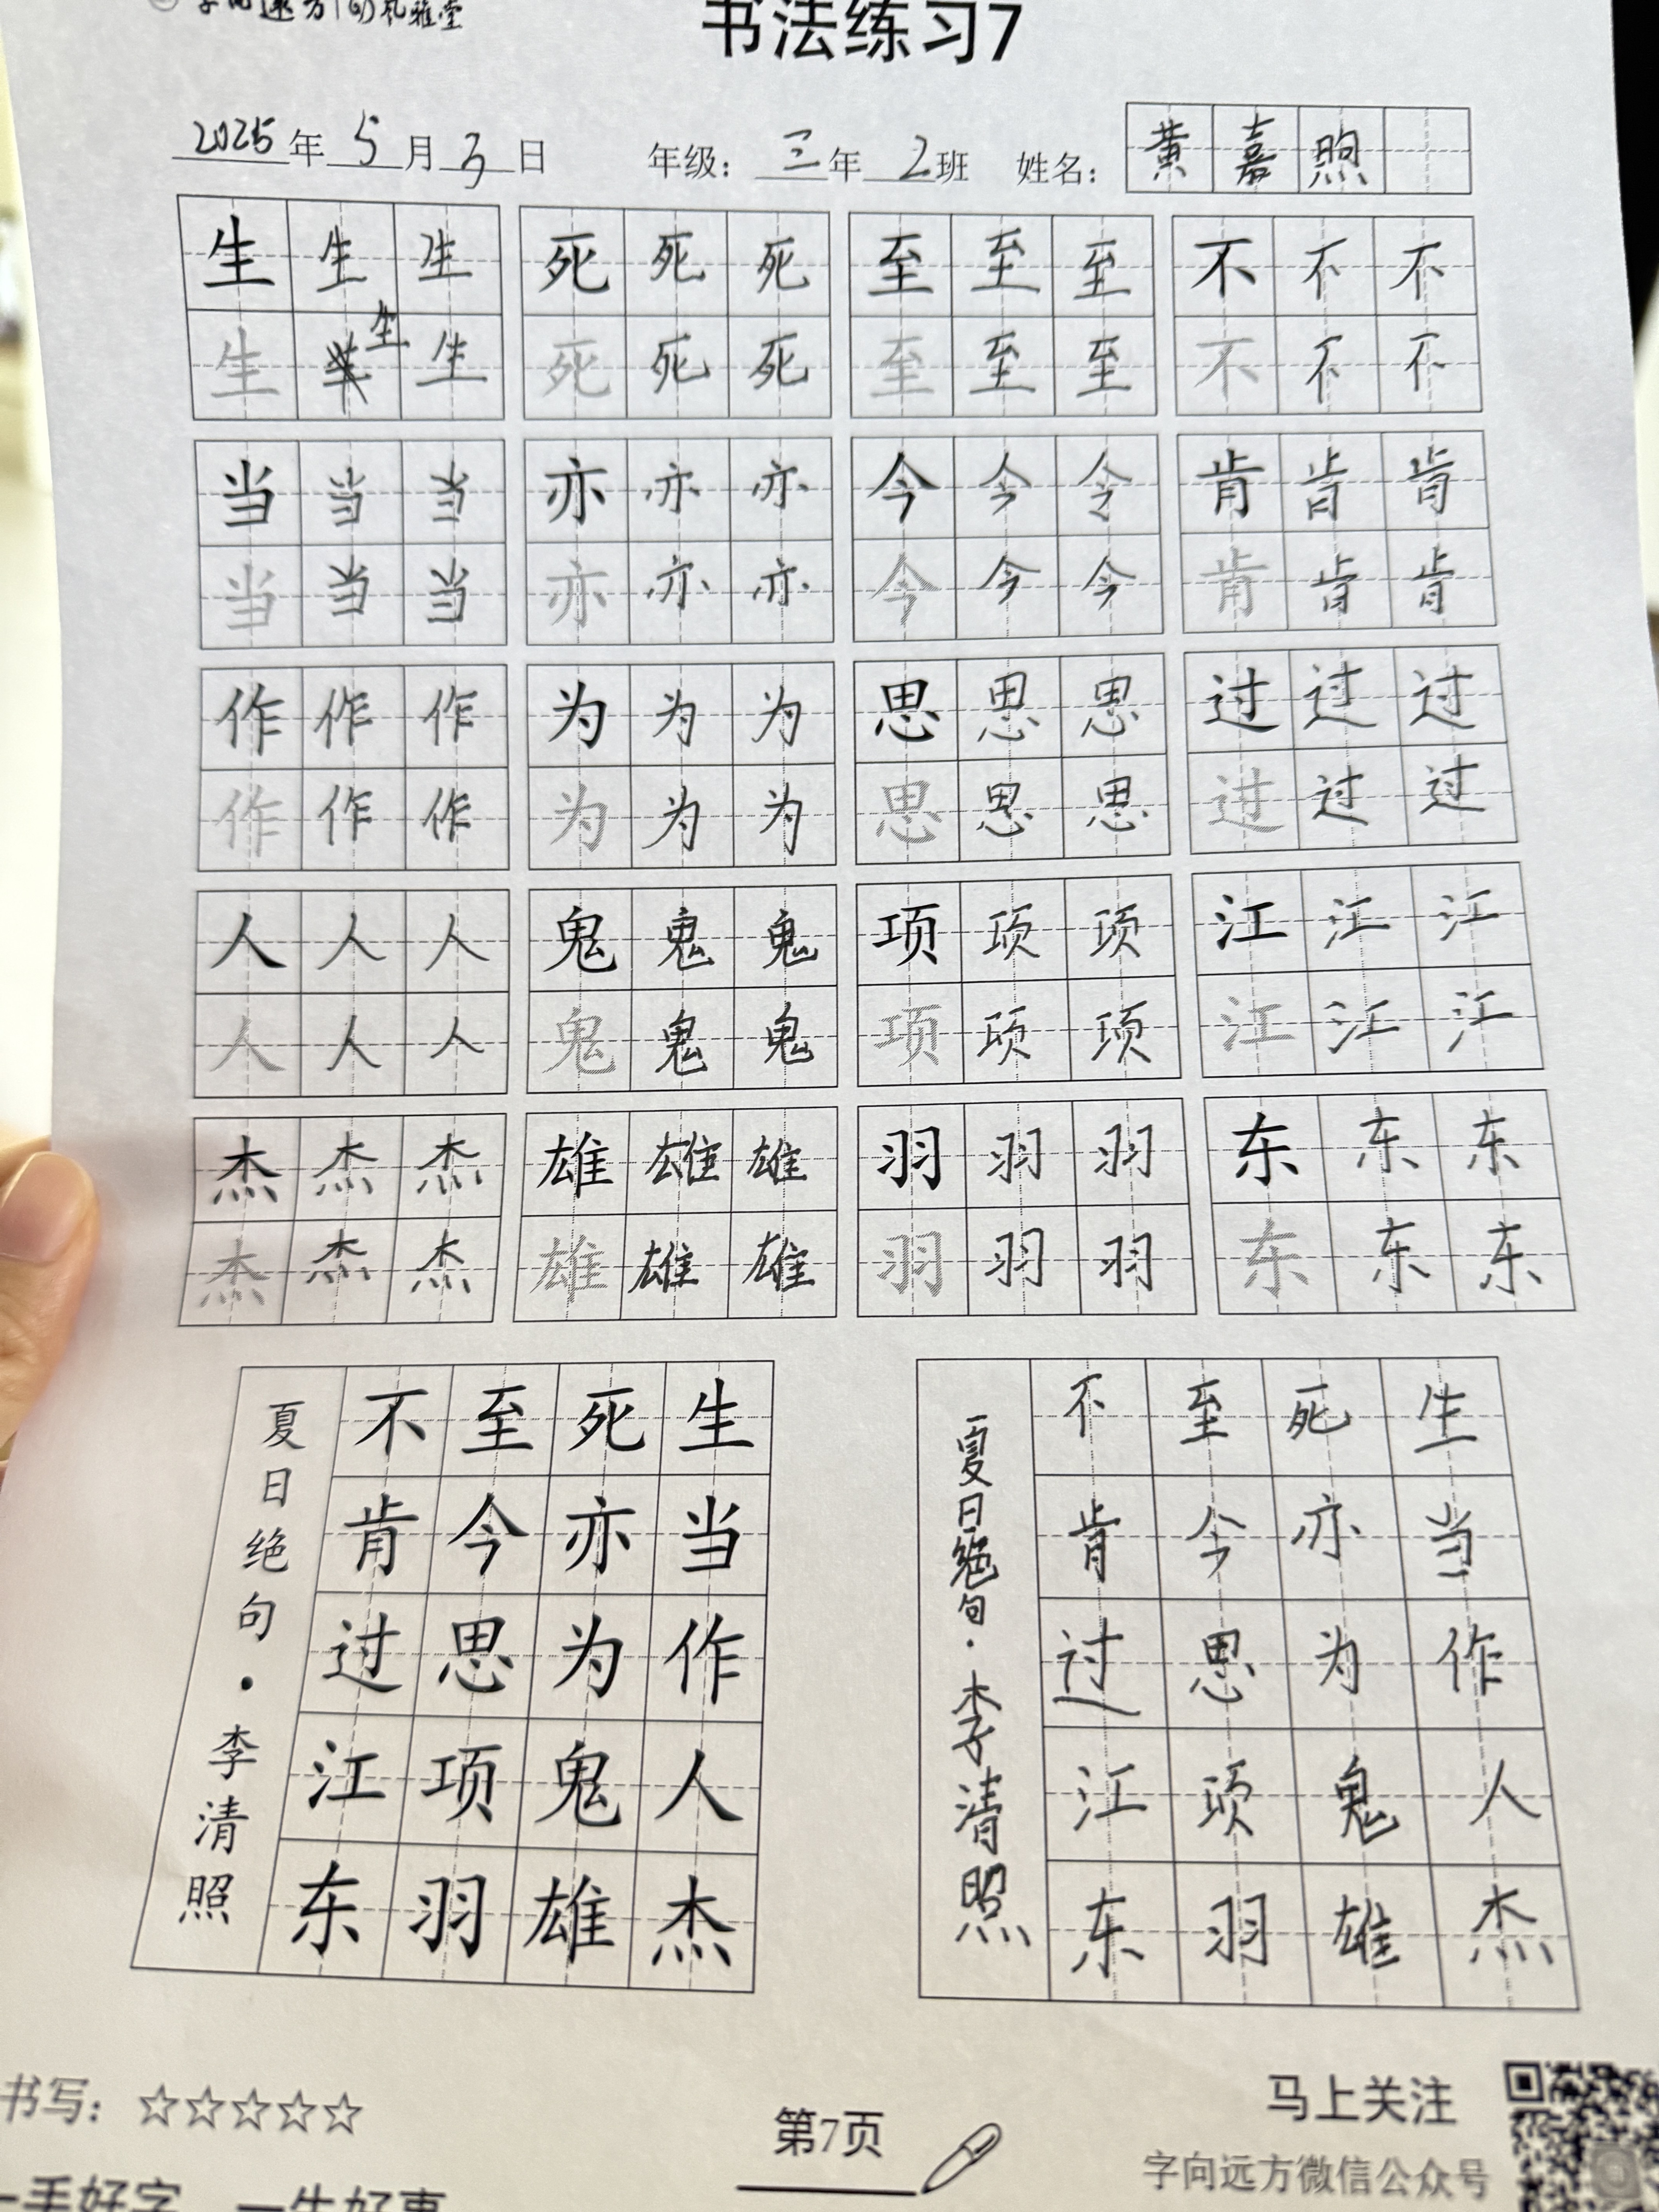 字向远方
书法练习7
2025年5月3日 年级：三年2班 姓名：黄嘉煦
生生生 死死死 至至至 不不不
生生生 死死死 至至至 不不不
当当当 亦亦亦 今今令 肯肯肯
当当当 亦亦亦 今今今 肯肯肯
作作作 为为为 思思思 过过过
作作作 为为为 思思思 过过过
人人人 鬼鬼鬼 项项项 江江江
人人人 鬼鬼鬼 项项项 江江江
杰杰杰 雄雄雄 羽羽羽 东东东
杰杰杰 雄雄雄 羽羽羽 东东东
生当作人杰
死亦为鬼雄
至今思项羽
不肯过江东
夏日绝句·李清照
生当作人杰
死亦为鬼雄
至今思项羽
不肯过江东
夏日绝句·李清照
书写：☆☆☆☆☆
第7页
马上关注
字向远方微信公众号
一手好字 一生好事